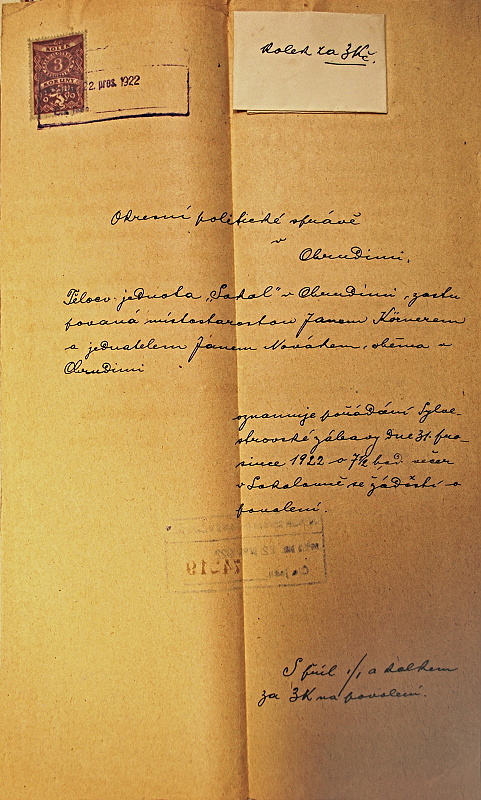 KOLEK
3
KORUNY
22. pros. 1922
Kolek za 3Kč.
Okresní politické správě
v
Chrudimi.
Tělocv. jednota „Sokol“ v Chrudimi, zastu
povaná místostarostou Janem Körnerem
a jednatelem Janem Novákem, oběma v
Chrudimi
oznamuje pořádání Sylve-
strovské zábavy dne 31. pro-
since 1922 o 7½ hod. večer
v Sokolovně se žádostí o
povolení.
74519
S příl 1/1 a kolkem
za 3K na povolení.